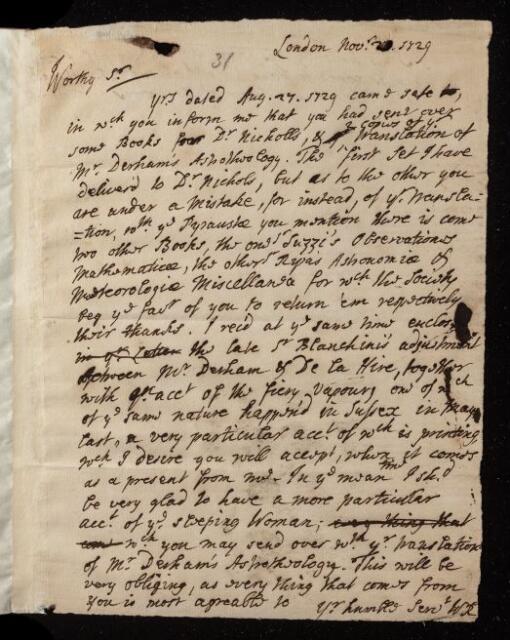 31
London Nov.r 20. 1729
Worthy S.r
Yrs dated Aug. 27. 1729 came safe to,
in wch you inform me that you had sent over
some Books for Dr Nicholls, & 2 Copies of yr
Translation of
Mr Derham's Astrotheology. The first Set I have
deliverd to Dr Nichols, but as to the other you
are under a Mistake, for instead, of yr Transla-
=tion, wth ye Pyraustæ you mention there is come
two other Books, the one Suzzi's Observationes
Mathematicæ, the other Ripa's Astronomiæ &
Meteorologiæ Miscellanea for wch the Society
beg ye favr of you to return 'em respectively
their thanks. I recd at ye same time enclosd
the late Sr Blanchini's adjustment
Between Mr Derham & De la Hire, together
with acct of the fiery Vapour, one of wch
of ye same nature happen'd in Sussex in May
last, a very particular acct of wch is printing
wch I desire you will accept, when it comes
as a present from me. In ye mean time I shd
be very glad to have a more particular
acct of yr sleeping Woman; every thing that
wch you may send over wth yr Translation
of Mr Derham's Astrotheology. This will be
very obliging, as every thing that comes from
you is most agreable to Yr humble Servt WR